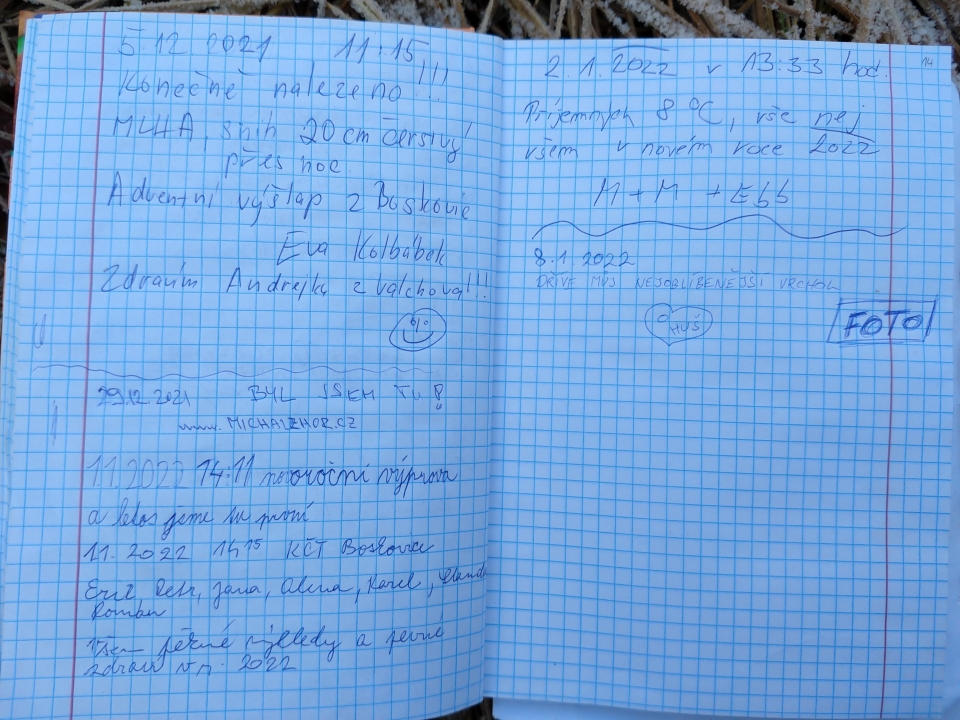 5.12 2021 11:15
Konečně nalezeno!!!
MLHA, sníh 20cm čerstvý
přes noc.
Adventní výšlap z Boskovic
Eva Kolbábek
Zdravím Andrejku z Valchova!!!
29.12.2021 BYL JSEM TU!
www.MICHALZHOR.CZ
1.1.2022 14:11 novoroční výprava
a letos jsme tu první
1.1. 2022 14 15 KČT Boskovice
Petr, Jana, Alena, Karel,
Roman
Všem pěkné výhledy a pevné
zdraví v r. 2022
14
2.1.2022 v 13:33 hod.
Příjemných 8 °C, vše nej
všem v novém roce 2022
M+M + Ebb
8.1 2022
DŘÍVE MŮJ NEJOBLÍBENĚJŠÍ VRCHOL
HUŠ
FOTO